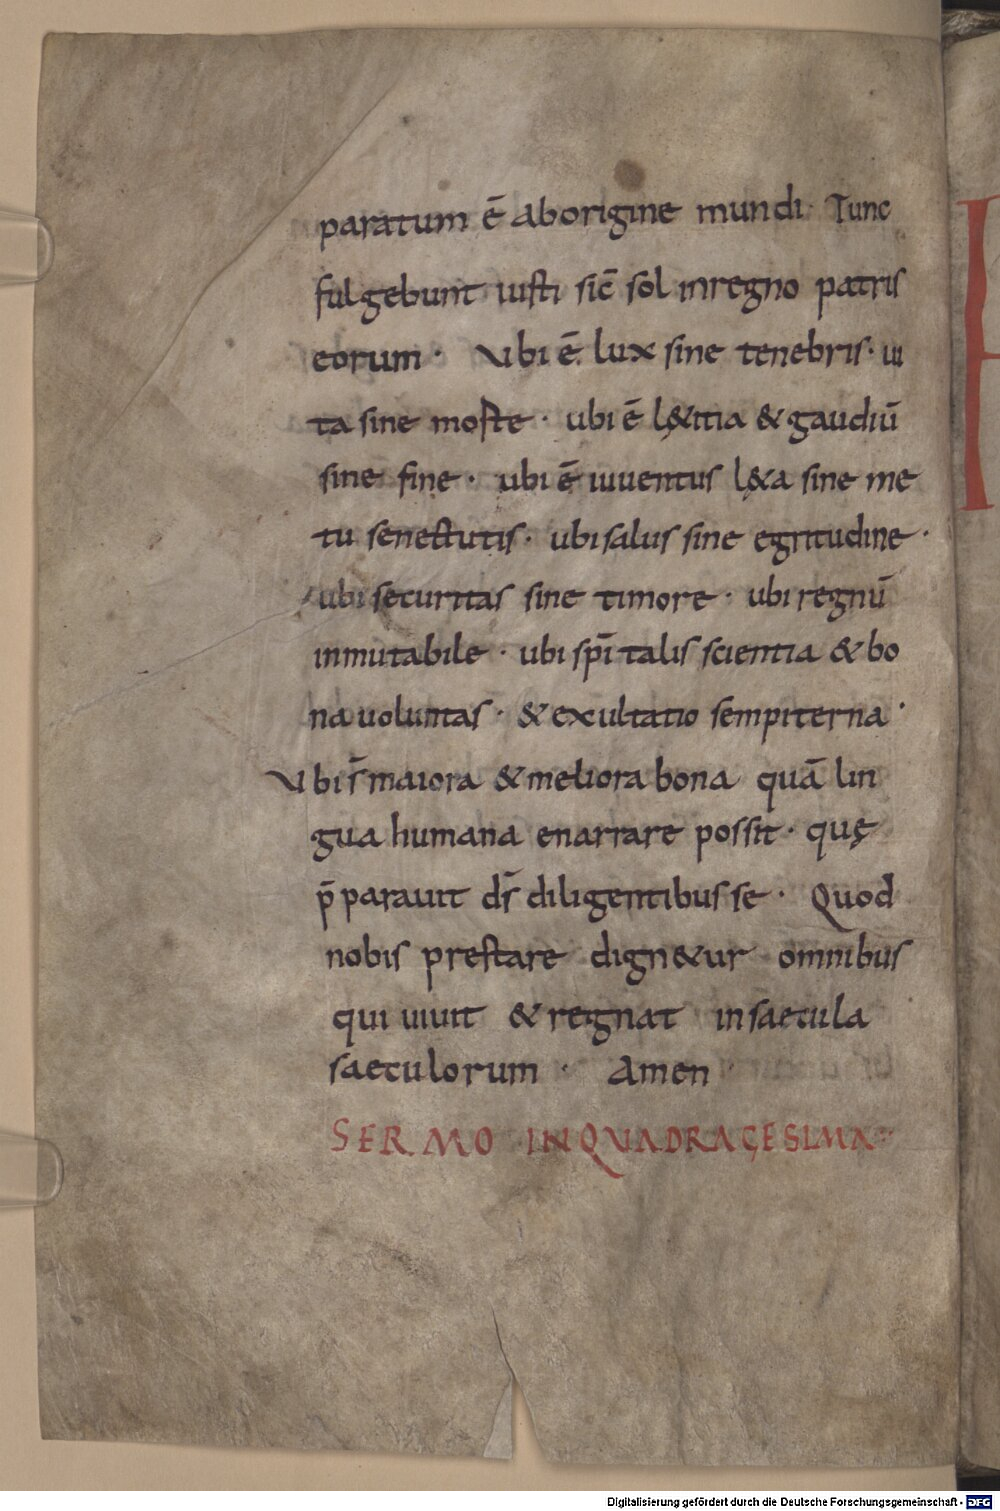 paratum ē aborigine mundi· Tunc
fulgebunt iusti sic̄ sol inregno patris
eorum · Vbi ē lux sine tenebris· ui
ta sine morte · ubi ē l&itia & gaudiū
sine fine · ubi ē iuuentus l&a sine me
tu senectutis · ubi salus sine egritudine ·
ubi securitas sine timore · ubi regnū
inmutabile · ubi spı̄talis scientia & bo
na uoluntas · & exultatio sempiterna ·
Vbi s̄ maiora & meliora bona quā lin
gua humana enarrare possit · quę
p̄parauit ds̄ diligentibus se · Quod
nobis prestare dign&ur omnibus
qui uiuit & regnat in saecula
saeculorum · Amen
SERMO IN QUADRAGESIMA
Digitalisierung gefördert durch die Deutsche Forschungsgemeinschaft - DFG